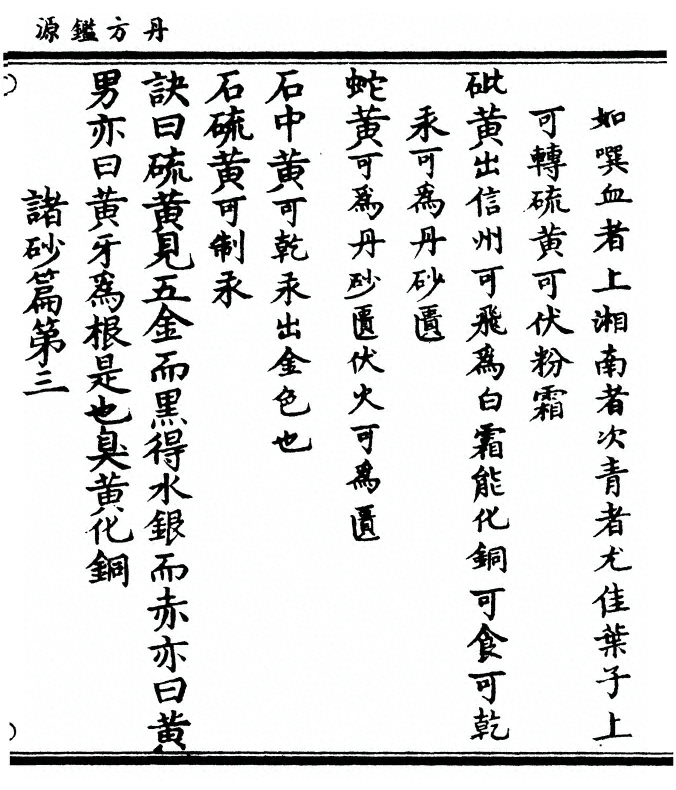 丹方鑑源
如噀血者上湘南者次青者尤佳葉子上
可轉硫黄可伏粉霜
砒黄出信州可飛爲白霜能化銅可食可乾
汞可爲丹砂匱
蛇黄可爲丹砂匱伏火可爲匱
石中黄可乾汞出金色也
石硫黄可制汞
訣曰硫黄見五金而黒得水銀而赤亦曰黄
男亦曰黄牙爲根是也臭黄化銅
諸砂篇第三